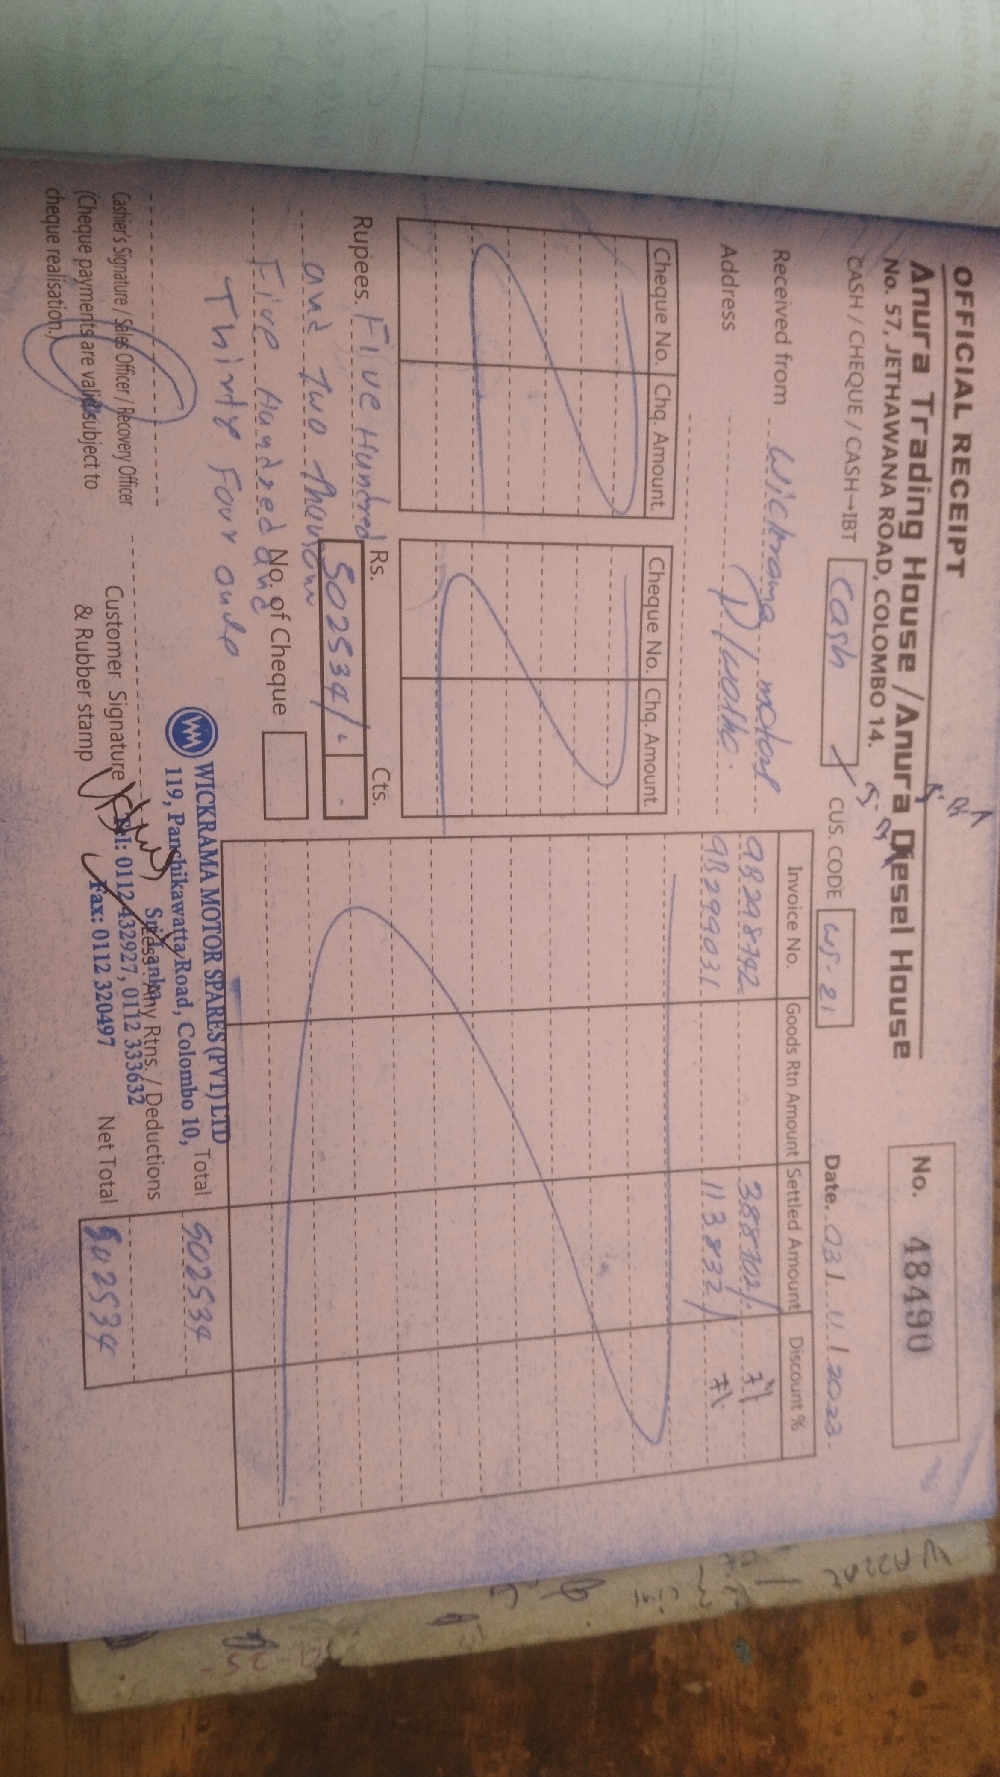 OFFICIAL RECEIPT
Anura Trading House / Anura Diesel House
No. 57, JETHAWANA ROAD, COLOMBO 14.
No. 48490
CASH / CHEQUE / CASH→IBT cash
CUS. CODE
Date. 03 1 11 1 2023.
Received from Wickrama motors
Address
Cheque No. Chq. Amount
Cheque No. Chq. Amount
Invoice No. Goods Rtn Amount Settled Amount Discount %
9B298742 388702/.
9B299031 113832/
Rs. Cts.
502534/.
Rupees. Five Hundred
and Two
Five Hundred and
Thirty Four only
No. of Cheque
WM
WICKRAMA MOTOR SPARES (PVT) LTD
119, Panchikawatta Road, Colombo 10,
Sri Lanka.
Tel: 0112 432927, 0112 333632
Fax: 0112 320497
Total 502534
Less: Any Rtns. / Deductions
Net Total 502534
Cashier's Signature / Sales Officer / Recovery Officer
(Cheque payments are valid subject to
cheque realisation.)
Customer Signature
& Rubber stamp